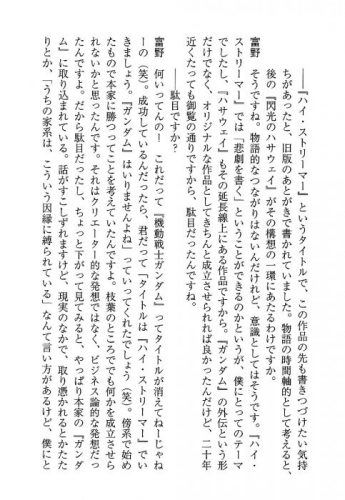 ――『ハイ・ストリーマー』というタイトルで、この作品の先も書きつづけたい気持
ちがあったと、旧版のあとがきで書かれていました。物語の時間軸的として考えると、
後の『閃光のハサウェイ』がその構想の一環にあたるわけですか。
富野　そうですね。物語的なつながりはないんだけれど、意識としてはそうです。『ハイ・
ストリーマー』では「悲劇を書く」ということができるのかというが、僕にとってのテーマ
でしたし、『ハサウェイ』もその延長線上にある作品ですから。『ガンダム』の外伝という形
だけでなく、オリジナルな作品としてきちんと成立させられれば良かったんだけど、二十年
近くたっても御覧の通りですから、駄目だったんですが。
――駄目ですか？
富野　何いってんのー　これだって『機動戦士ガンダム』ってタイトルが消えてねーじゃね
ーの（笑）。成功しているんだったら、君だって「タイトルは『ハイ・ストリーマー』でい
きましょう。『ガンダム』はいりませんよね」っていってくれたでしょう（笑）。傍系で始め
たもので本家に勝つってことを考えていたんですよ。枝葉のところででも何かを成立させら
れないかと思ったんです。それはクリエーター的な発想ではなく、ビジネス論的な発想だっ
たんですよ。だから駄目だったし、ちょっと下がって見てみると、やっぱり本家の『ガンダ
ム』に取り込まれている。話がすこしずれますけど、現実のなかで、取り憑かれるとかたた
りとか、「うちの家系は、こういう因縁に縛られている」なんて言い方があるけど、僕にと